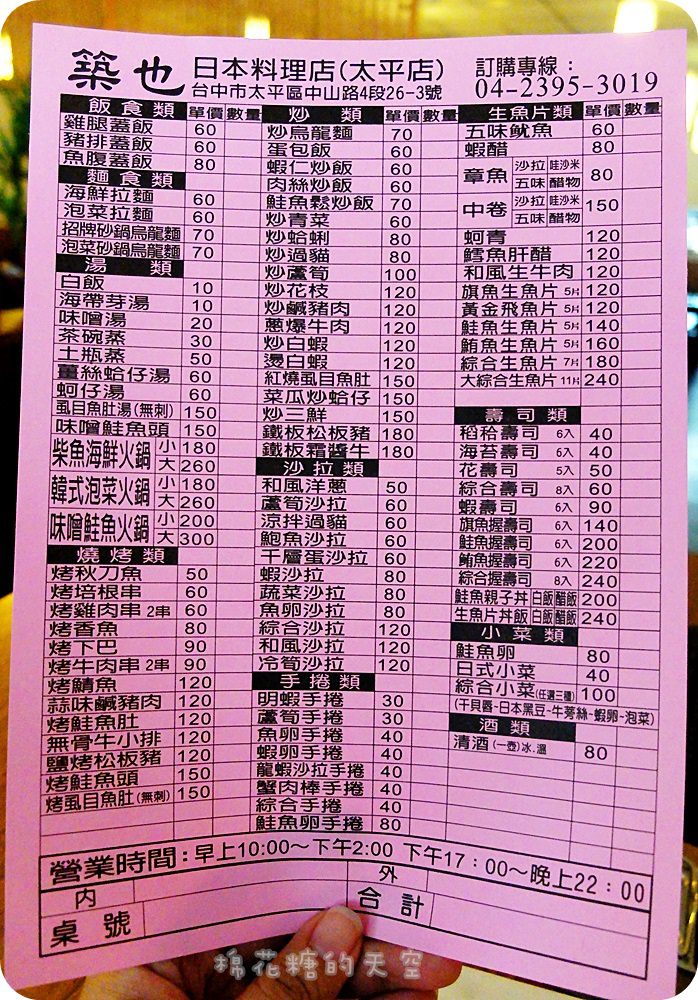 築也 日本料理店(太平店)
台中市太平區中山路4段26-3號
訂購專線：
04-2395-3019
飯食類 單價 數量
雞腿蓋飯 60
豬排蓋飯 60
魚腹蓋飯 80
麵食類
海鮮拉麵 60
泡菜拉麵 60
招牌砂鍋烏龍麵 70
泡菜砂鍋烏龍麵 70
湯類
白飯 10
海帶芽湯 10
味噌湯 20
茶碗蒸 30
土瓶蒸 50
薑絲蛤仔湯 60
蚵仔湯 60
虱目魚肚湯(無刺) 150
味噌鮭魚頭 150
柴魚海鮮火鍋 小 180
大 260
韓式泡菜火鍋 小 180
大 260
味噌鮭魚火鍋 小 200
大 300
燒烤類
烤秋刀魚 50
烤培根串 60
烤雞肉串 2串 60
烤香魚 80
烤下巴 90
烤牛肉串 2串 90
烤鯖魚 120
蒜味鹹豬肉 120
烤鮭魚肚 120
無骨牛小排 120
鹽烤松板豬 120
烤鮭魚頭 150
烤虱目魚肚(無刺) 150
炒類 單價 數量
炒烏龍麵 70
蛋包飯 60
蝦仁炒飯 60
肉絲炒飯 60
鮭魚鬆炒飯 70
炒青菜 60
炒蛤蜊 80
炒過貓 80
炒蘆筍 100
炒花枝 120
炒鹹豬肉 120
蔥爆牛肉 120
炒白蝦 120
燙白蝦 120
紅燒虱目魚肚 150
菜瓜炒蛤仔 150
炒三鮮 150
鐵板松板豬 180
鐵板霜醬牛 180
沙拉類
和風洋蔥 50
蘆筍沙拉 60
涼拌過貓 60
鮑魚沙拉 60
千層蛋沙拉 60
蝦沙拉 80
蔬菜沙拉 80
魚卵沙拉 80
綜合沙拉 120
和風沙拉 120
冷筍沙拉 120
手捲類
明蝦手捲 30
蘆筍手捲 30
魚卵手捲 40
蝦卵手捲 40
龍蝦沙拉手捲 40
蟹肉棒手捲 40
綜合手捲 40
鮭魚卵手捲 80
生魚片類 單價 數量
五味魷魚 60
蝦醋 80
章魚 沙拉 哇沙米 五味 醋物 80
中卷 沙拉 哇沙米 五味 醋物 150
蚵青 120
鱈魚肝醋 120
和風生牛肉 120
旗魚生魚片 5片 120
黃金飛魚片 5片 120
鮭魚生魚片 5片 140
鮪魚生魚片 5片 160
綜合生魚片 7片 180
大綜合生魚片 11片 240
壽司類
稻稌壽司 6入 40
海苔壽司 6入 40
花壽司 5入 50
綜合壽司 8入 60
蝦壽司 6入 90
旗魚握壽司 6入 140
鮭魚握壽司 6入 200
鮪魚握壽司 6入 220
綜合握壽司 8入 240
鮭魚親子丼 白飯 醋飯 200
生魚片丼飯 白飯 醋飯 240
小菜類
鮭魚卵 80
日式小菜 40
綜合小菜(任選三種) 100
(干貝唇~日本黑豆~牛蒡絲~蝦卵~泡菜)
酒類
清酒(一壺)冰.溫 80
營業時間：早上10:00～下午2:00 下午17：00～晚上22：00
內
外
桌號
合計
棉花糖的天空